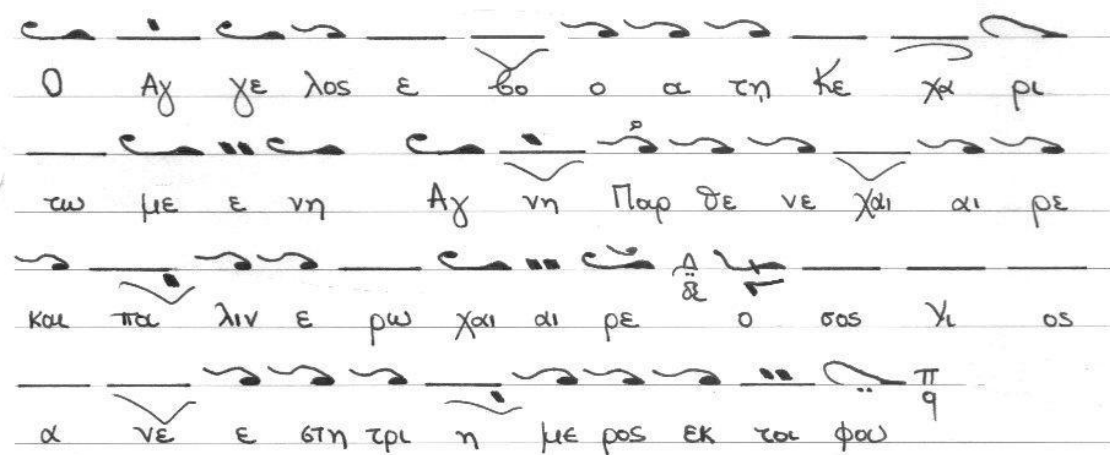 Ο Αγ γε λος ε βο ο α τη Κε χα ρι
τω με ε νη Αγ νη Παρ θε νε χαι αι ρε
και πα λιν ε ρω χαι αι ρε Δ ο σος Υι ος
α νε ε στη τρι η με ρος εκ τοι φου π q